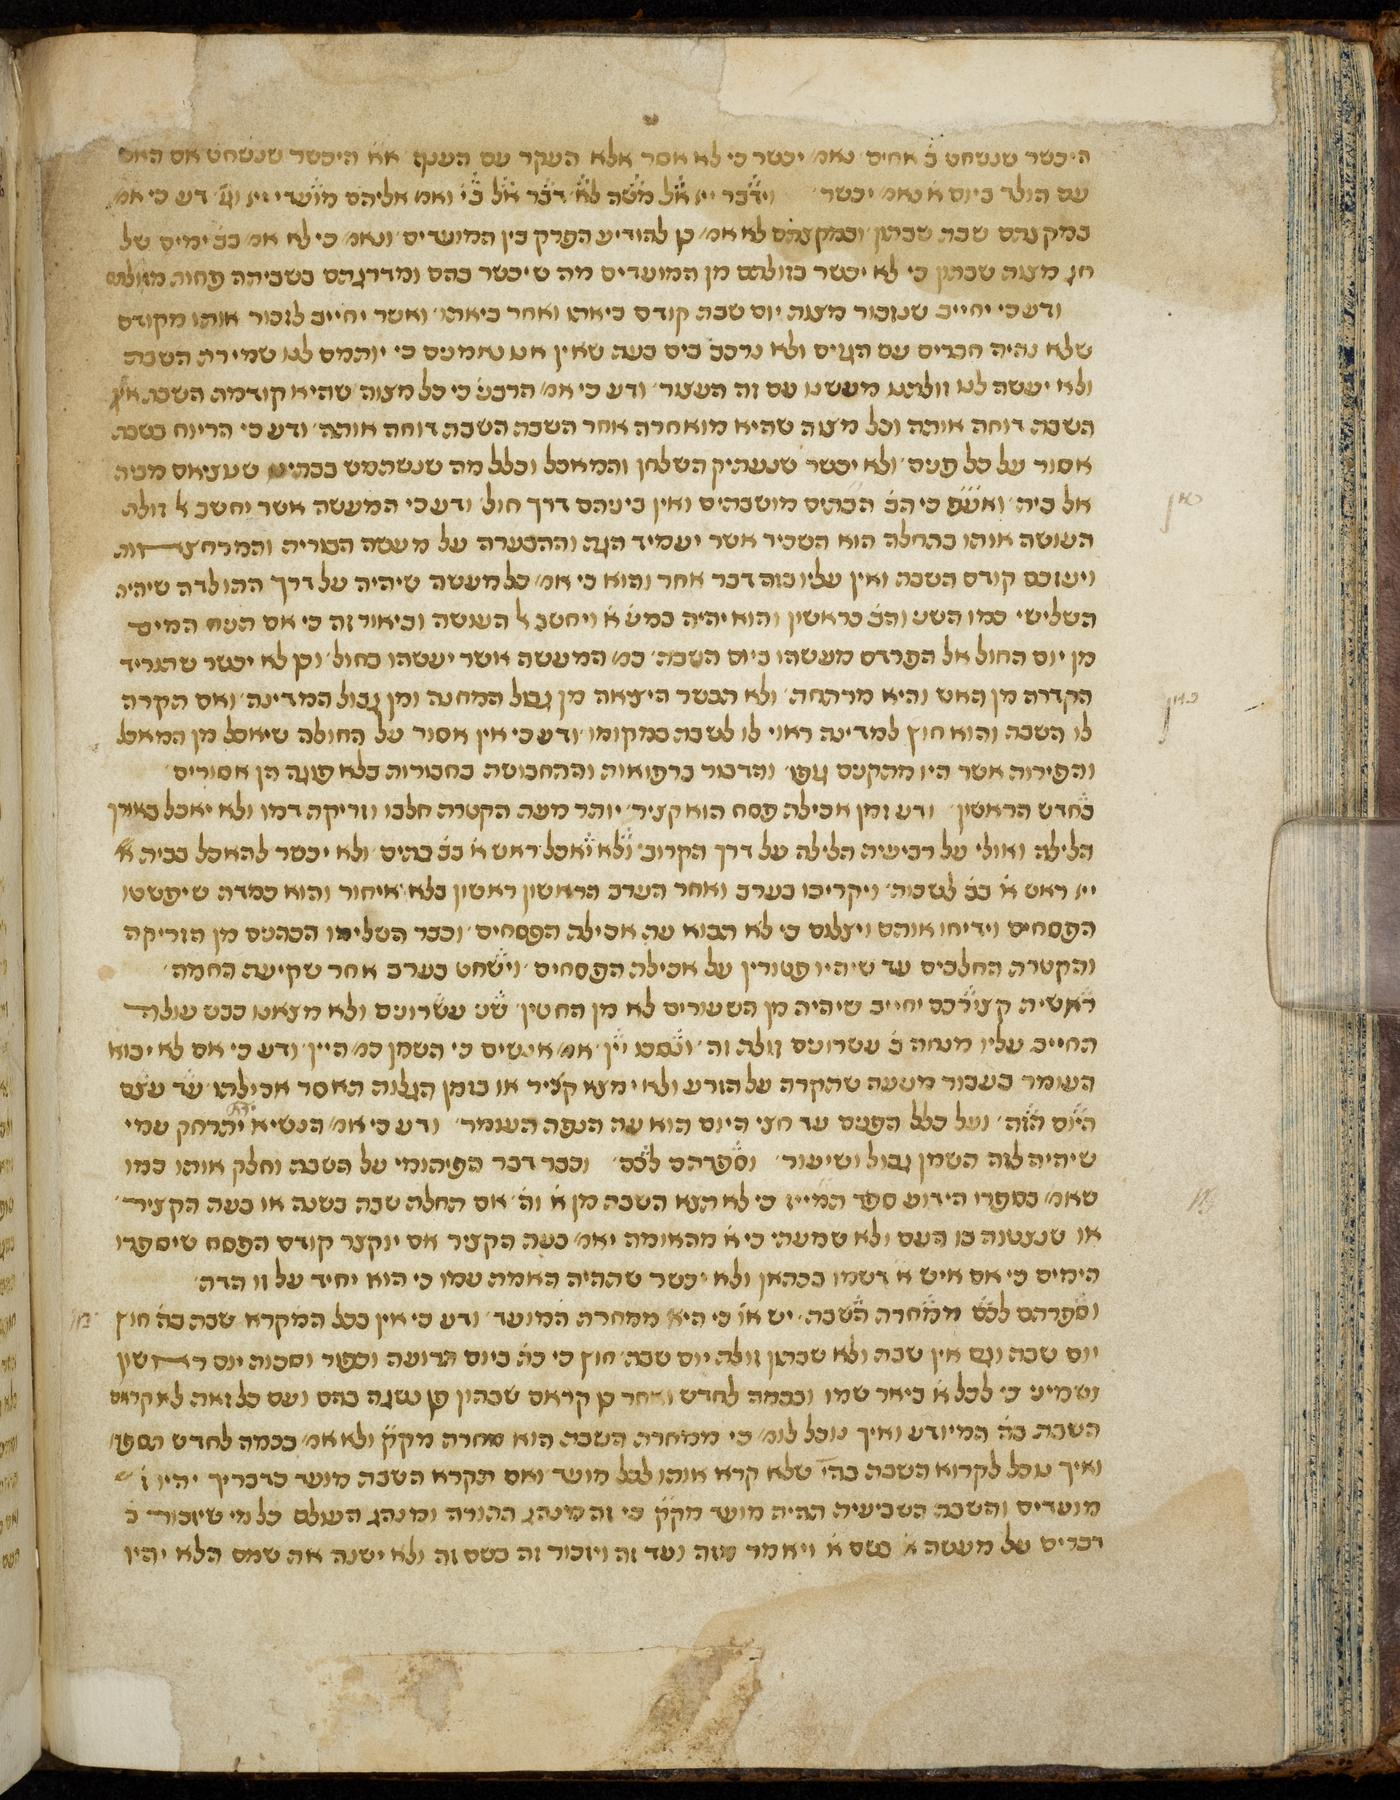 היכשר שנשחט ב׳ אחים נאמ׳ יכשר כי לא אסר אלא העקר עם הענף אא היכשר שנשחט אם האם
עם הולד ביום א׳ נאמ׳ יכשר׳ וידבר ייי אל משה לא׳ דבר אל בי׳ ואמ׳ אליהם מועדי ייי וג׳ דע כי אמ׳
במקצתם שבת שבתון ובמקצתם לא אמ׳ כן להודיע הפרק בין המועדים ונאמ׳ כי לא אמ׳ בב׳ ימים של
חג מצות שבתון כי לא יכשר בזולתם מן המועדים מה שיכשר בהם ומדרגתם בשביתה פחות מזולתם
ודע כי יחייב שנזכור מצות יום שבת קודם ביאתו ואחר ביאתו׳ ואשר יחייב לזכור אותו מקודם
שלא נהיה חברים עם הגוים ולא נרכב בים בעת שאין אנו נאמנים כי יותמם לנו שמירת השבת
ולא יעשה לנו זולתנו מעשינו עם זה העצור׳ ודע כי אמ׳ הרבנ׳ כי כל מצוה שהיא קודמת השבת אין
השבת דוחה אותה וכל מצוה שהיא מואחרת אחר השבת השבת דוחה אותה׳ ודע כי הריוח בשבת
אסור על כל פנים׳ ולא יכשר שנעתיק השלחן והמאכל וכלל מה שנשתמש בבתינו שנוציאם מבית
אל בית׳ ואעפ כי הב׳ הבתים מושבתים ואין ביניהם דרך חול׳ ודע כי המעשה אשר יחשב ל זולת
העושה אותו בתחלה הוא השכיר אשר יעמיד הגת וההבערה על מעשה הכוריה והמרחצאות
ויעזבם קודם השבת ואין עליו בזה דבר אחר והוא כי אמ׳ כל מעשה שיהיה על דרך ההולדה שיהיה
השלישי כמו השני והב׳ כראשון והוא יהיה כמע׳ א׳ ויחשב ל העושה וביאור זה כי אם הנח המים
מן יום החול אל הפרדס מעשהו ביום השבת׳ כמ׳ המעשה אשר יעשהו בחול׳ וכן לא יכשר שתוריד
הקדרה מן האש והיא מרתחת׳ ולא תכשר היציאה מן גבול המחנה ומן גבול המדינה׳ ואם הקרה
לו השבת והוא חוץ למדינה ראוי לו לשבת במקומו׳ ודע כי אין אסור על החולה שיאכל מן המאכל
והפירות אשר היו מתקנים גופו׳ והדבור ברפואות וההחבושה בחבורות בלא פונה הן אסורים׳
בחדש הראשון׳ ודע זמן אכילת פסח הוא קציר׳ יותר מעת הקטרת חלבו וזריקת דמו ולא יאכל באורך
הלילה ואולי על רביעית הלילה על דרך הקרוב׳ ולא יאכל ראש א׳ בב׳ בתים׳ ולא יכשר להאכל בבית א׳
ייי ראש א׳ בב׳ לשבות׳ ויקריבו בערב ואחר הערב הראשון ראשון בלא איחור והוא כמדת שיפשטו
הפסחים וידיחו אותם ויצלום כי לא תבוא עת אכילת הפסחים׳ וכבר השלימו הכהנים מן הזריקה
והקטרת החלבים עד שיהיו פטורין על אכילת הפסחים׳ וישחט בערב אחר שקיעת החמה׳
ראשית קצירכם יחייב שיהיה מן השעורים לא מן החטין׳ שני עשרונים ולא מצאנו כבש עולה
החייב עליו מנחה ב׳ עשרונים זולת זה׳ ונסכו יין׳ אמ׳ אנשים כי השמן כמ׳ היין׳ ודע כי אם לא יבוא
העומר בעבור מנעה שהקרה על הזרע ולא ימצא קציר או בזמן הגלות תאסר אכילתו עד עצם
היום הזה׳ ועל כלל הפנים עד חצי היום הוא עת הנפת העומר׳ ודע כי אמ׳ הנשיא יתרחק עמי
שיהיה לזה השמן גבול ושיעור׳ וספרתם לכם׳ וכבר דבר הפיתומי על השבת וחלק אותו כמו
שאמ׳ בספרו הידוע ספר המייז כי לא תצא השבת מן א׳ וה׳ אם תחלת שבת בשנה או בעת הקציר׳
או שנצטוה בו העם ולא שמעתי כי א׳ מהאומה יאמ׳ בעת הקציר אם יוקצר קודם הפסח שיספרו
הימים כי אם איש א׳ דשמו בכהאן ולא יכשר שתהיה האמת עמו כי הוא יחיד על זו הדת׳
וספרתם לכם ממחרת השבת׳ יש או׳ כי היא ממחרת המועד׳ ודע כי אין בכל המקרא שבת בה׳ חוץ
יום שבת וגם אין שבת ולא שבתון זולת יום שבת׳ חוץ כי כת׳ ביום תרועה וכפור וסכות יום ראשון
ושמיני כי לכל א׳ ביאר שמו ובכמה לחדש ואחר כן קראם שבתון פן נשגה בהם ועם כל זאת לא קראם
השבת בה׳ המיודע ואיך נוכל לומ׳ כי ממחרת השבת הוא מחרת מקק׳ ולא אמ׳ בכמה לחדש תספרו
ואיך נוכל לקרוא השבת בהי׳ שלא קרא אותו לכל מועד׳ ואם תקרא השבת מועד כדבריך יהיו ז׳
מועדים והשבת השביעית תהיה מועד מקק׳ כי זה מנהג התורה ומנהג העולם כל מי שיזכור ב׳
דברים על מעשה א׳ בשם א׳ ויאמר מזה ועד זה ויזכור זה בשם זה ולא ישנה את שמם הלא יהיו